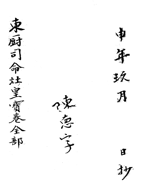 申年玖月　日抄
陳惪字
東厨司命灶皇寶卷全部